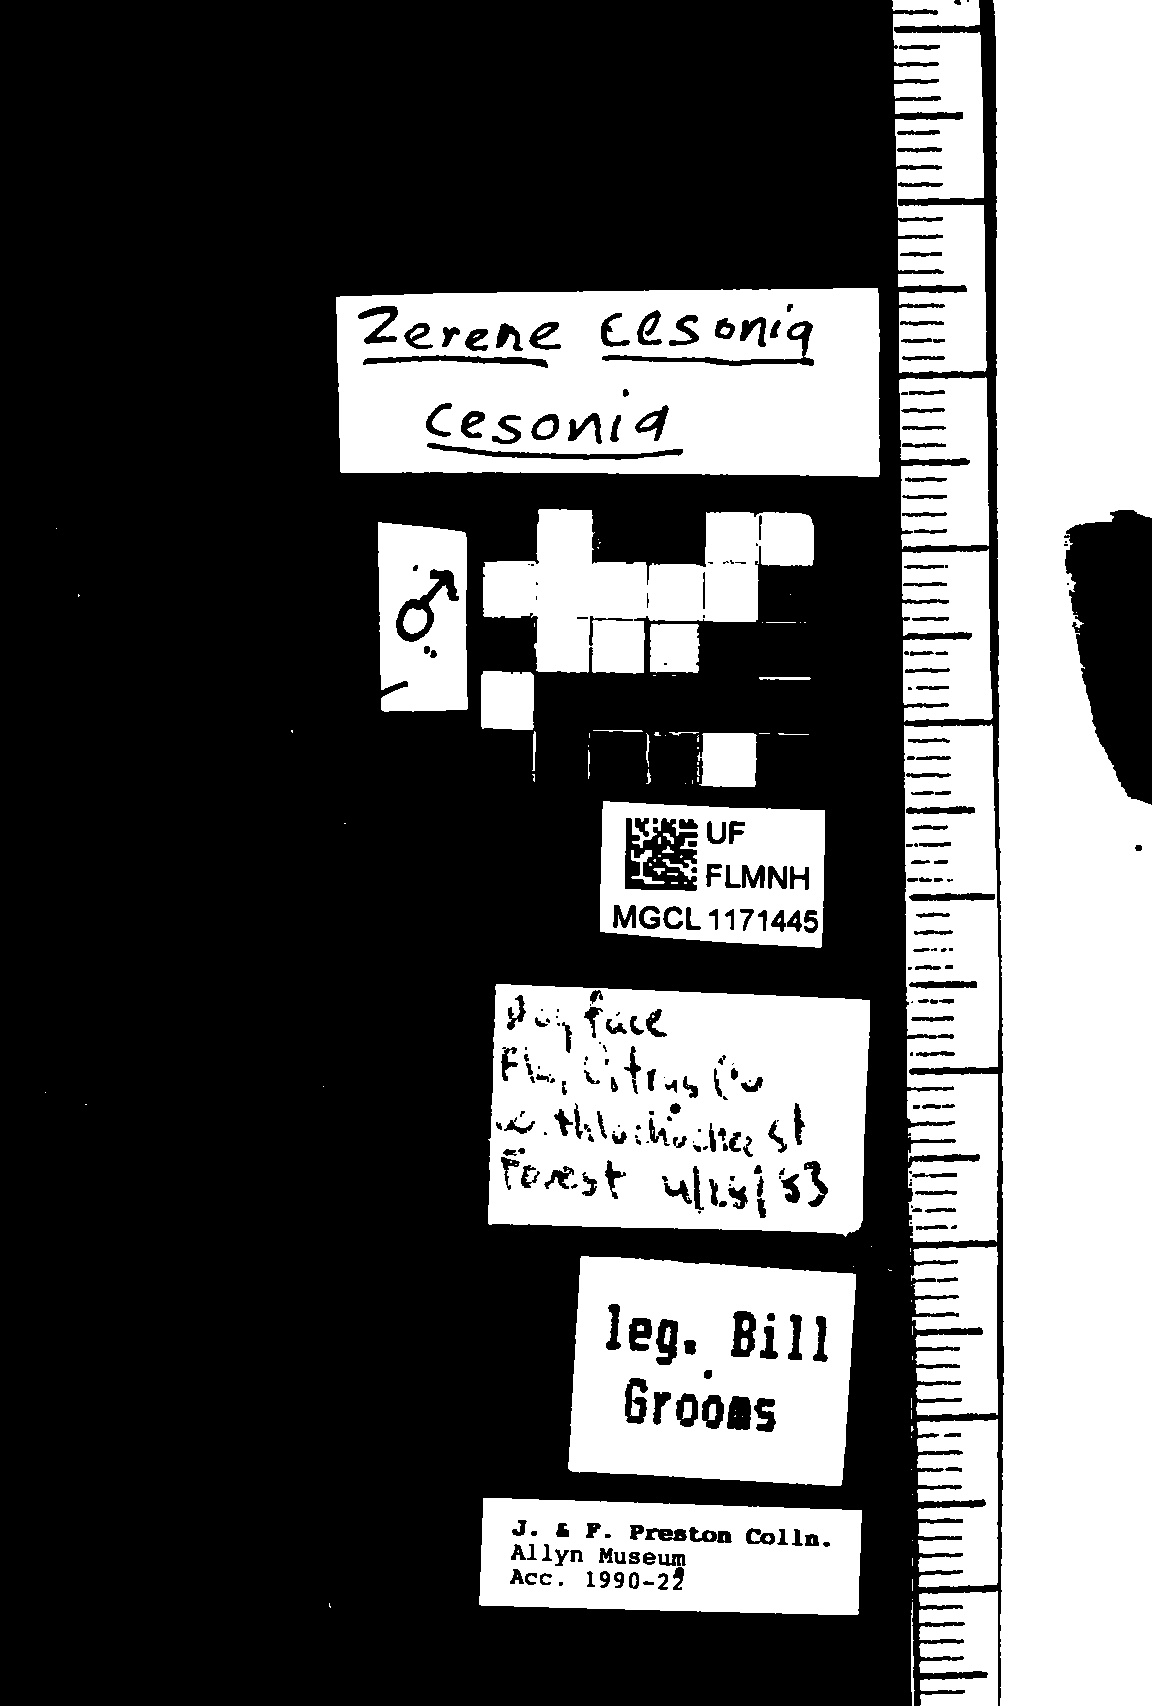 Zerene cesonia
cesonia
♂
UF
FLMNH
MGCL 1171445
Dog face
Fla, Citrus Co
withlacoochee St
Forest 4/25/83
leg. Bill
Grooms
J. & F. Preston Colln.
Allyn Museum
Acc. 1990-22